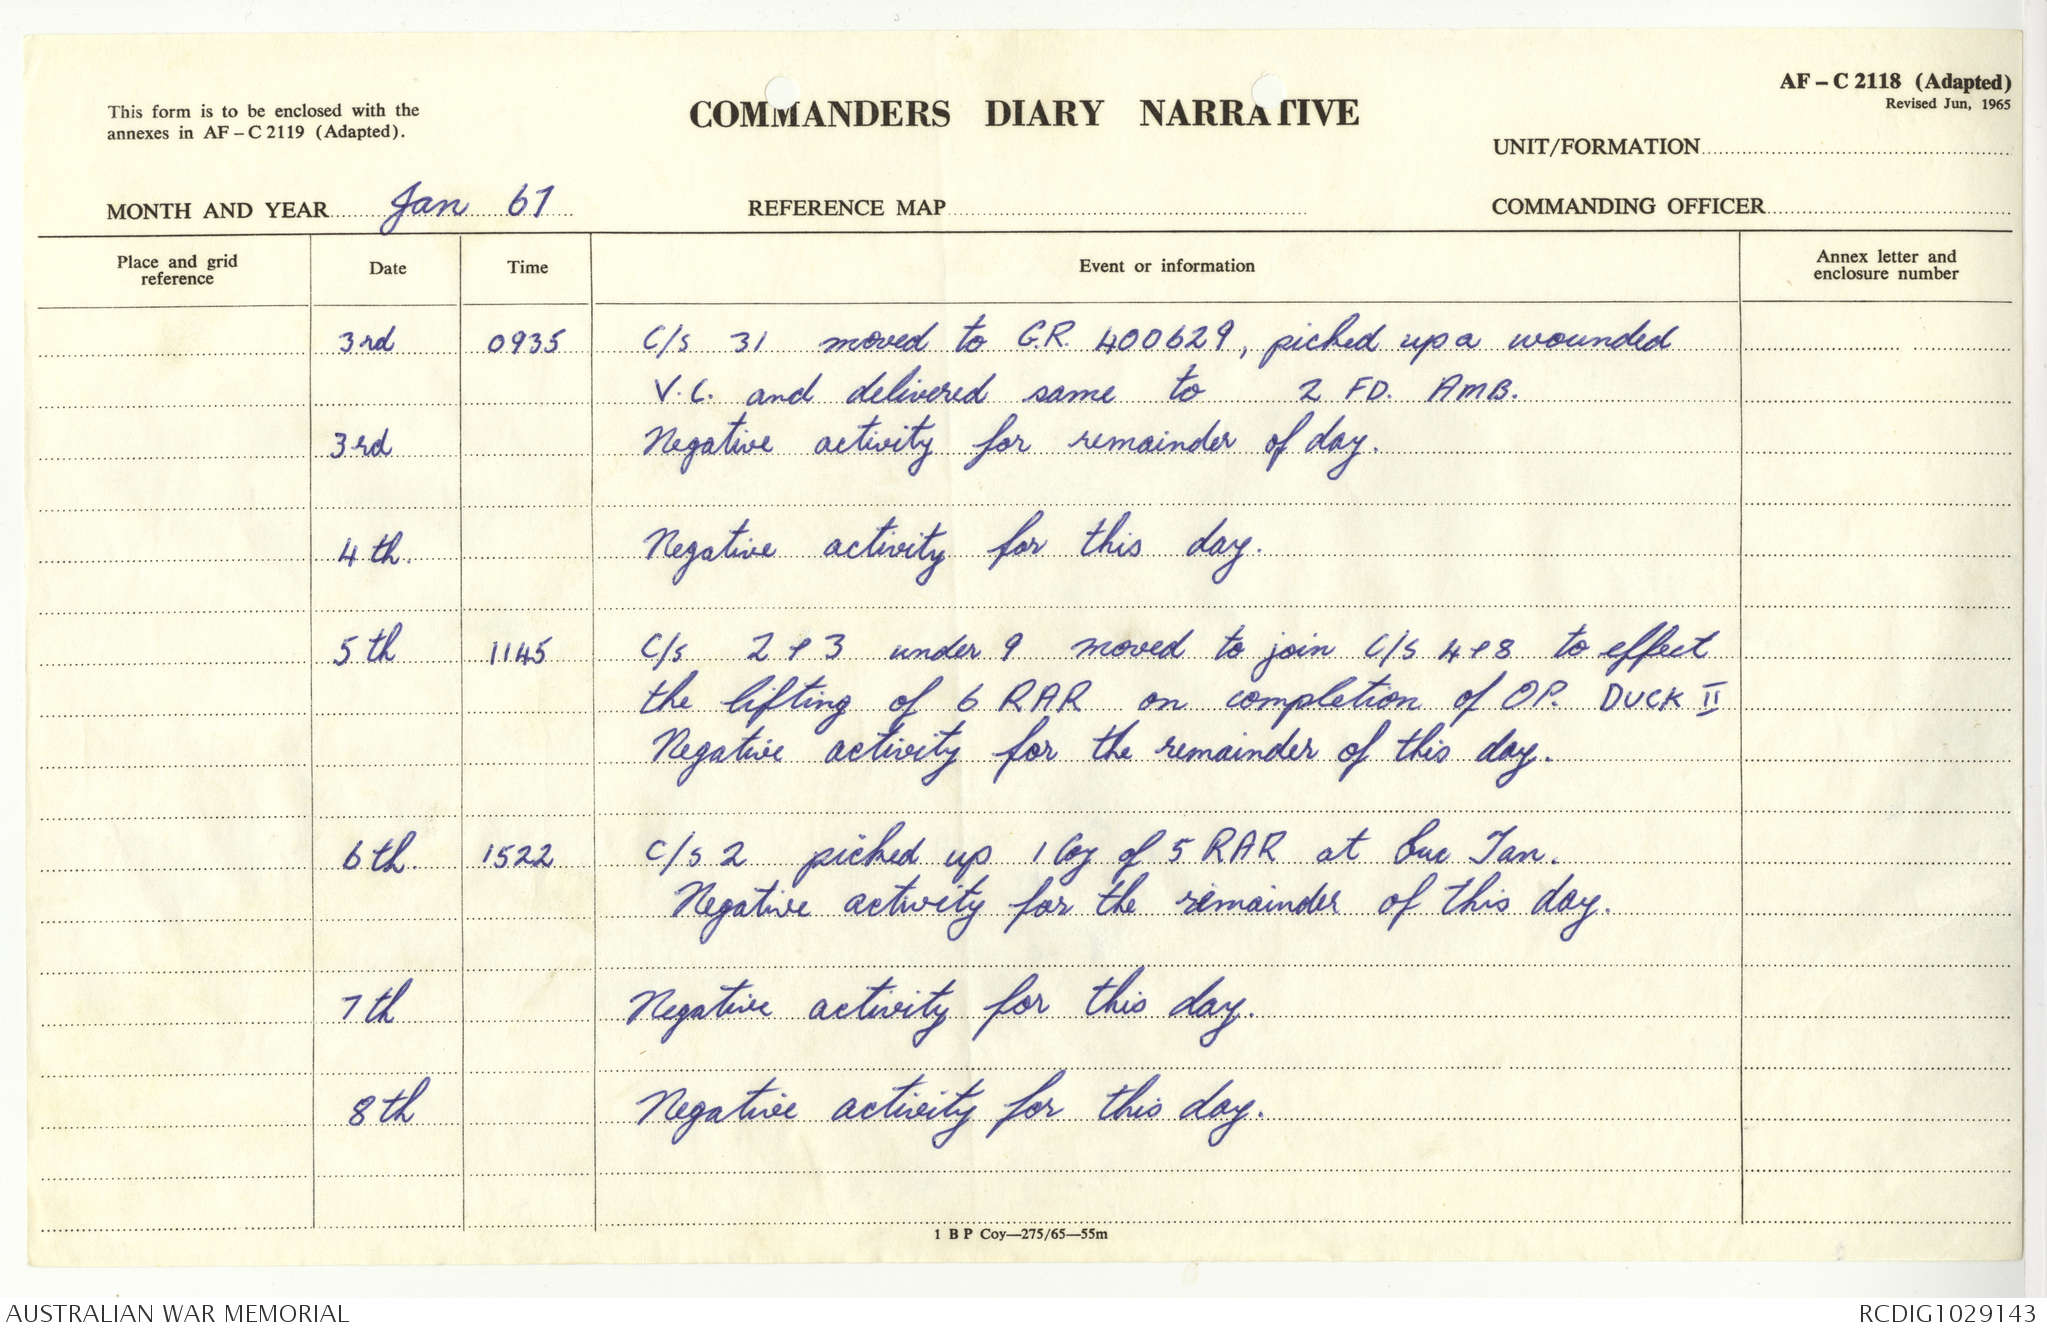 This form is to be enclosed with the
annexes in AF – C 2119 (Adapted).
COMMANDERS DIARY NARRATIVE
AF – C 2118 (Adapted)
Revised Jun, 1965
UNIT/FORMATION
MONTH AND YEAR Jan 67
REFERENCE MAP
COMMANDING OFFICER
Place and grid reference Date Time Event or information Annex letter and enclosure number
3rd 0935 C/s 31 moved to G.R. 400629, picked up a wounded
V.C. and delivered same to 2 FD. AMB.
3rd Negative activity for remainder of day.
4th. Negative activity for this day.
5th 1145 C/s 2 & 3 under 9 moved to join C/s 4 & 8 to effect
the lifting of 6 RAR on completion of OP. DUCK II
Negative activity for the remainder of this day.
6th. 1522 C/s 2 picked up 1 Coy of 5 RAR at Suc Tan.
Negative activity for the remainder of this day.
7th Negative activity for this day.
8th Negative activity for this day.
1 B P Coy—275/65—55m
AUSTRALIAN WAR MEMORIAL
RCDIG1029143